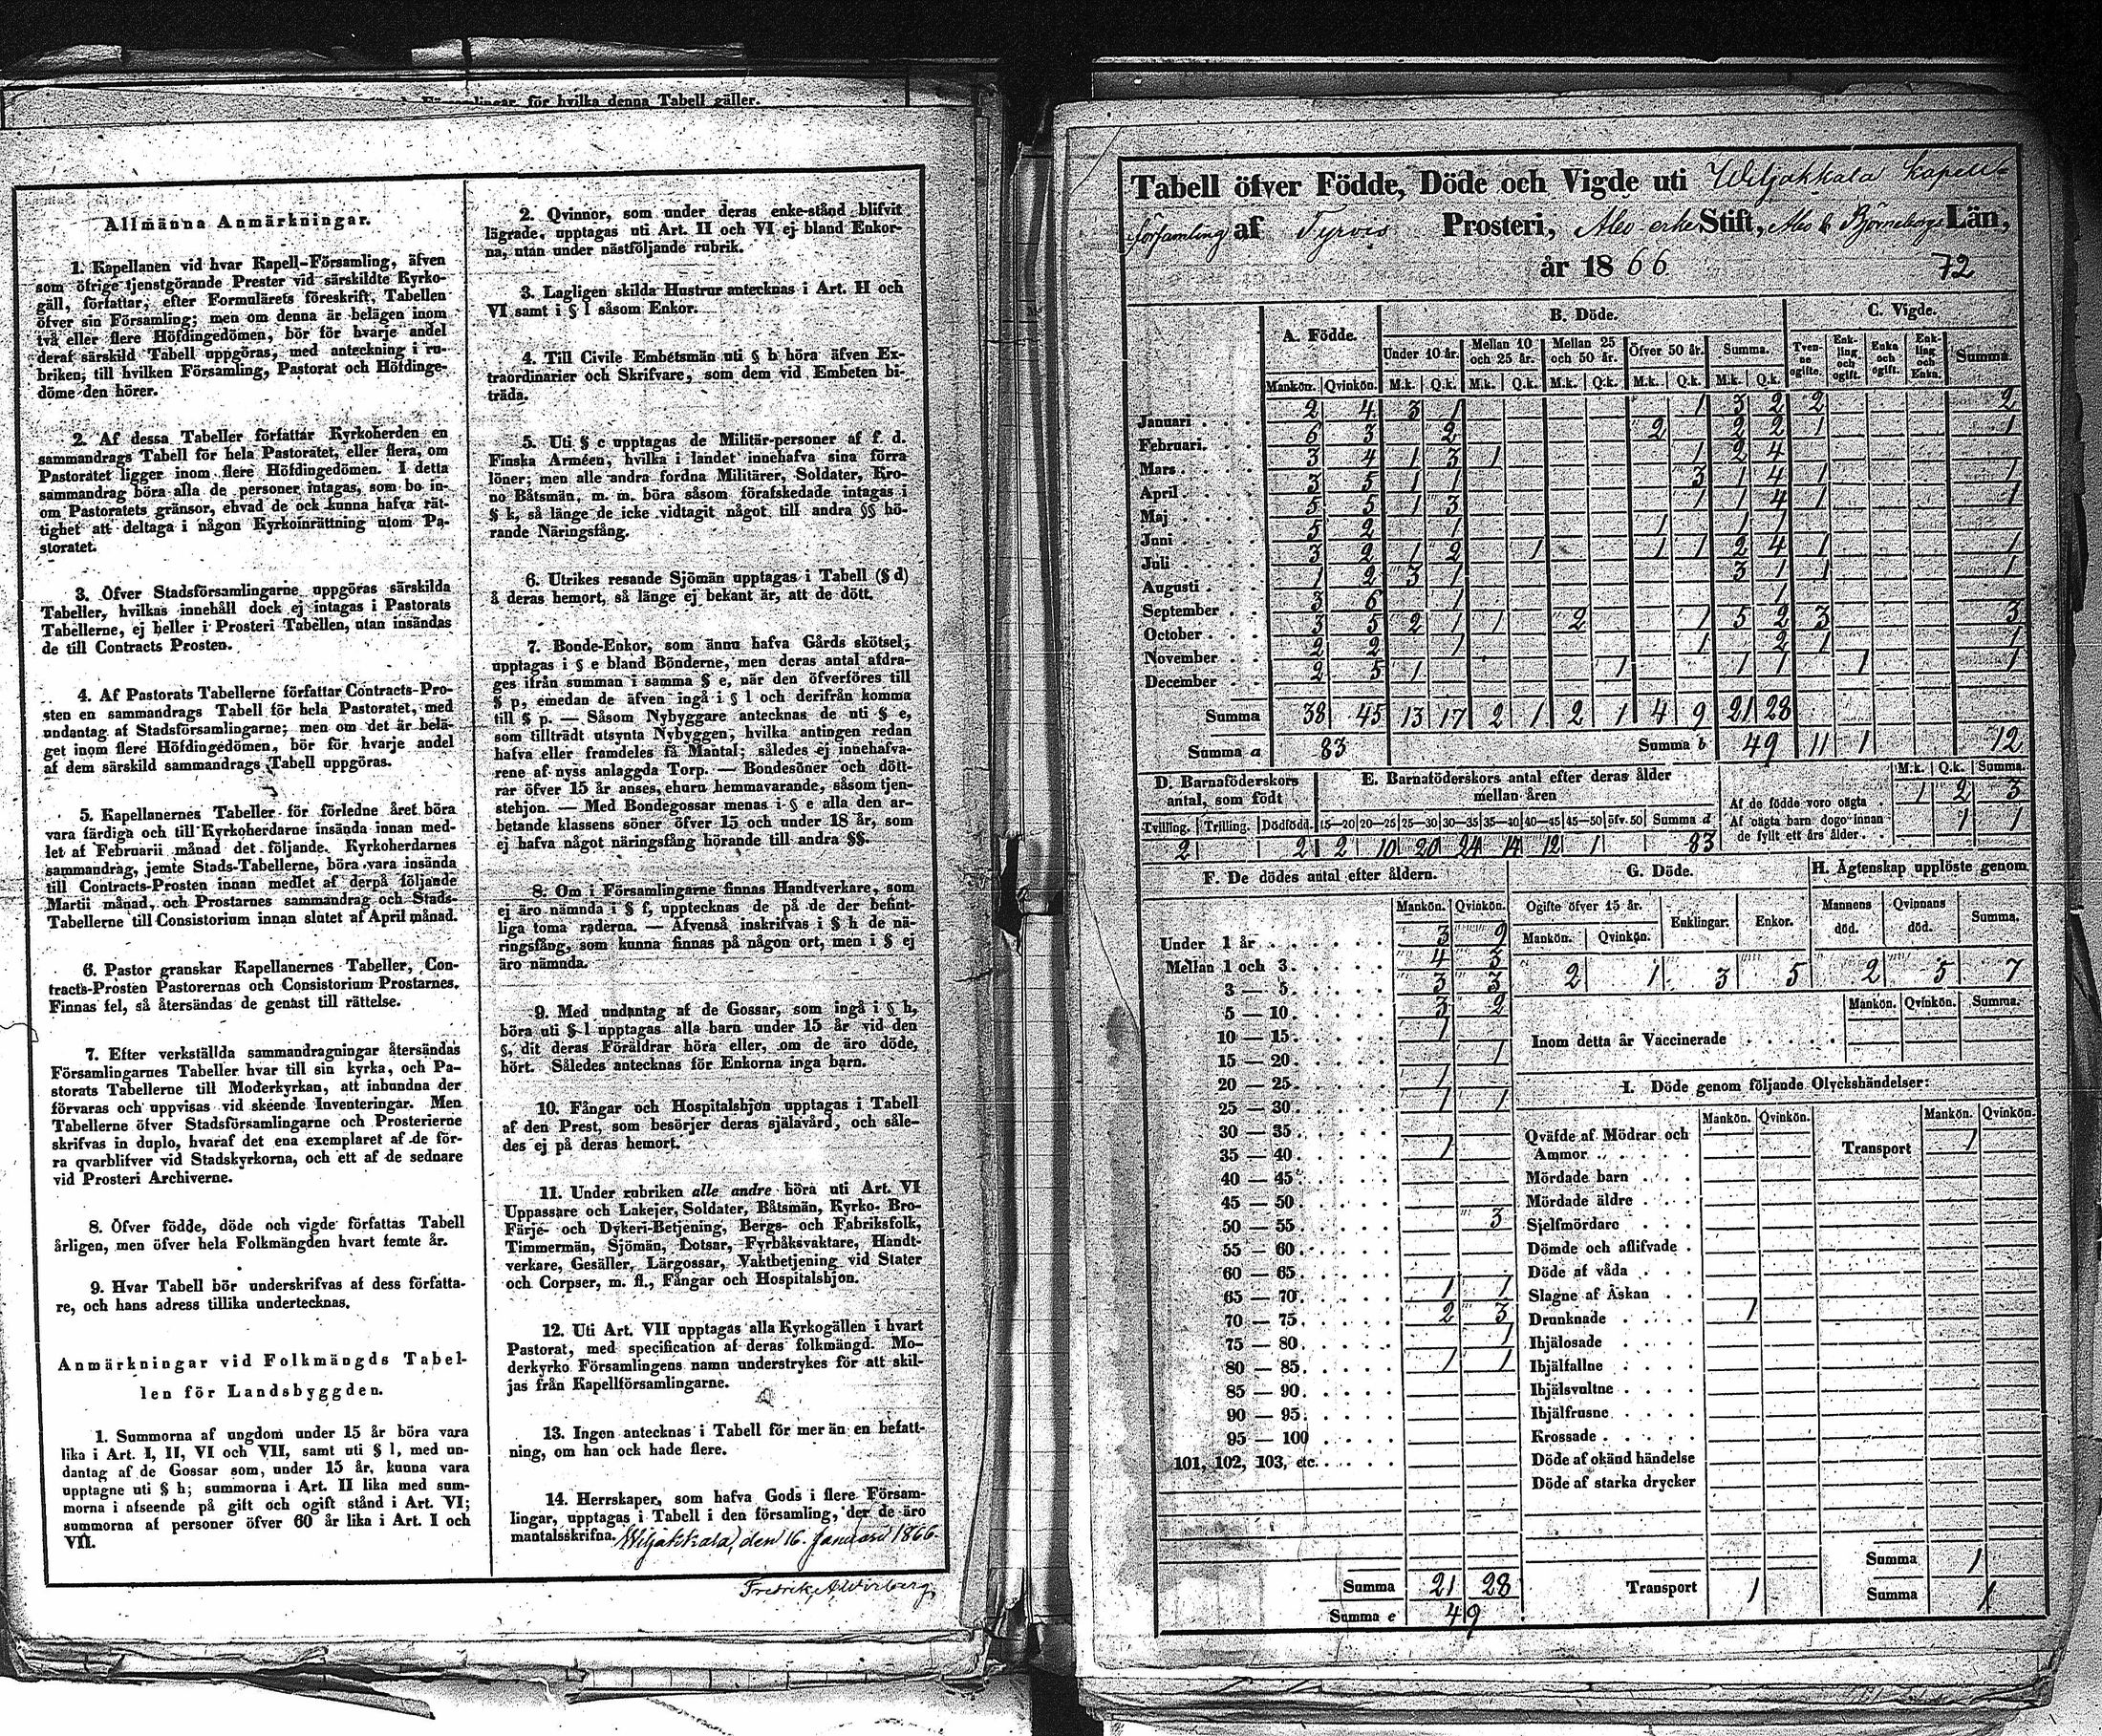 för hvilka denna Tabell gäller.
Allmänna Anmärkningar.
1. Kapellanen vid hvar Kapell-Församling, äfven
som öfrige tjenstgörande Prester vid särskildte Kyrko-
gäll, författar, efter Formulärets föreskrift, Tabellen
öfver sin Församling; men om denna är belägen inom
två eller flere Höfdingedömen, bör för hvarje andel
deraf särskild Tabell uppgöras, med anteckning i ru-
briken, till hvilken Församling, Pastorat och Höfdinge-
döme den hörer.
2. Af dessa Tabeller författar Kyrkoherden en
sammandrags Tabell för hela Pastoratet, eller flera, om
Pastoratet ligger inom flere Höfdingedömen. I detta
sammandrag böra alla de personer intagas, som bo in-
om Pastoratets gränsor, ehvad de ock kunna hafva rät-
tighet att deltaga i någon Kyrkoinrättning utom Pa-
storatet.
3. Öfver Stadsförsamlingarne uppgöras särskilda
Tabeller, hvilkas innehåll dock ej intagas i Pastorats
Tabellerne, ej heller i Prosteri Tabellen, utan insändas
de till Contracts Prosten.
4. Af Pastorats Tabellerne författar Contracts-Pro-
sten en sammandrags Tabell för hela Pastoratet, med
undantag af Stadsförsamlingarne; men om det är belä-
get inom flere Höfdingedömen, bör för hvarje andel
af dem särskild sammandrags Tabell uppgöras.
5. Kapellanernes Tabeller för förledne året böra
vara färdiga och till Kyrkoherdarne insända innan med-
let af Februarii månad det följande. Kyrkoherdarnes
sammandrag, jemte Stads-Tabellerne, böra vara insända
till Contracts-Prosten innan medlet af derpå följande
Martii månad, och Prostarnes sammandrag och Stads-
Tabellerne till Consistorium innan slutet af April månad.
6. Pastor granskar Kapellanernes Tabeller, Con-
tracts-Prosten Pastorernas och Consistorium Prostarnes.
Finnas fel, så återsändas de genast till rättelse.
7. Efter verkställda sammandragningar återsändas
Församlingarnes Tabeller hvar till sin kyrka, och Pa-
storats Tabellerne till Moderkyrkan, att inbundna der
förvaras och uppvisas vid skeende Inventeringar. Men
Tabellerne öfver Stadsförsamlingarne och Prosterierne
skrifvas in duplo, hvaraf det ena exemplaret af de för-
ra qvarblifver vid Stadskyrkorna, och ett af de sednare
vid Prosteri Archiverne.
8. Öfver födde, döde och vigde författas Tabell
årligen, men öfver hela Folkmängden hvart femte år.
9. Hvar Tabell bör underskrifvas af dess författa-
re, och hans adress tillika undertecknas.
Anmärkningar vid Folkmängds Tabel-
len för Landsbyggden.
1. Summorna af ungdom under 15 år böra vara
lika i Art. I, II, VI och VII, samt uti § l, med un-
dantag af de Gossar som, under 15 år, kunna vara
upptagne uti § h; summorna i Art. II lika med sum-
morna i afseende på gift och ogift stånd i Art. VI;
summorna af personer öfver 60 år lika i Art. I och
VII.
2. Qvinnor, som under deras enke-stånd blifvit
lägrade, upptagas uti Art. II och VI ej bland Enkor-
na, utan under nästföljande rubrik.
3. Lagligen skilda Hustrur antecknas i Art. II och
VI samt i § l såsom Enkor.
4. Till Civile Embetsmän uti § b höra äfven Ex-
traordinarier och Skrifvare, som dem vid Embeten bi-
träda.
5. Uti § c upptagas de Militär-personer af f. d.
Finska Arméen, hvilka i landet innehafva sina förra
löner; men alle andra fordna Militärer, Soldater, Kro-
no Båtsmän, m. m. böra såsom förafskedade intagas i
§ k, så länge de icke vidtagit något till andra §§ hö-
rande Näringsfång.
6. Utrikes resande Sjömän upptagas i Tabell (§ d)
å deras hemort, så länge ej bekant är, att de dött.
7. Bonde-Enkor, som ännu hafva Gårds skötsel,
upptagas i § e bland Bönderne, men deras antal afdra-
ges ifrån summan i samma § e, när den öfverföres till
§ p, emedan de äfven ingå i § l och derifrån komma
till § p. — Såsom Nybyggare antecknas de uti § e,
som tillträdt utsynta Nybyggen, hvilka antingen redan
hafva eller framdeles få Mantal; således ej innehafva-
rene af nyss anlagda Torp. — Bondesöner och dött-
rar öfver 15 år anses, ehuru hemmavarande, såsom tjen-
stehjon. — Med Bondegossar menas i § e alla den ar-
betande klassens söner öfver 15 och under 18 år, som
ej hafva något näringsfång hörande till andra §§.
8. Om i Församlingarne finnas Handtverkare, som
ej äro nämnda i § f, upptecknas de på de der befint-
liga toma raderna. — Äfvenså inskrifvas i § h de nä-
ringsfång, som kunna finnas på någon ort, men i § ej
äro nämnda.
9. Med undantag af de Gossar, som ingå i § h,
böra uti § l upptagas alla barn under 15 år vid den
§, dit deras Föräldrar höra eller, om de äro döde,
hört. Således antecknas för Enkorna inga barn.
10. Fångar och Hospitalshjon upptagas i Tabell
af den Prest, som besörjer deras själavård, och såle-
des ej på deras hemort.
11. Under rubriken alle andre böra uti Art. VI
Uppassare och Lakejer, Soldater, Båtsmän, Kyrko- Bro-
Färje- och Dykeri-Betjening, Bergs- och Fabriksfolk,
Timmermän, Sjömän, Lotsar, Fyrbåksvaktare, Handt-
verkare, Gesäller, Lärgossar, Vaktbetjening vid Stater
och Corpser, m. fl., Fångar och Hospitalshjon.
12. Uti Art. VII upptagas alla Kyrkogällen i hvart
Pastorat, med specification af deras folkmängd. Mo-
derkyrko Församlingens namn understrykes för att skil-
jas från Kapellförsamlingarne.
13. Ingen antecknas i Tabell för mer än en befatt-
ning, om han ock hade flere.
14. Herrskaper, som hafva Gods i flere Försam-
lingar, upptagas i Tabell i den församling, der de äro
mantalsskrifna. Wiljakkala, den 16. Januari 1866.
Fredrik
Tabell öfver Födde, Döde och Vigde uti Wiljakkala Kapell-
församling af Tyrvis Prosteri, Abo erke Stift, Abo & Björneborgs Län,
år 1866
72
A. Födde. B. Döde. C. Vigde.
Under 10 år. Mellan 10 och 25 år. Mellan 25 och 50 år. Öfver 50 år. Summa. Tven-ne ogifte. Enk-ling och ogift. Enka och ogift. Enk-ling och Enka. Summa
Mankön. Qvinkön. M.k. Q.k. M.k. Q.k. M.k. Q.k. M.k. Q.k. M.k. Q.k.
Januari 2 4 3 1 1 3 2 2 2
Februari. 6 3 2 2 2 2 1 1
Mars 3 4 1 3 1 1 2 4
April 3 5 1 1 3 1 4 1 1
Maj 5 5 1 3 1 1 4 1 1
Juni 5 2 1 1 1 1
Juli 3 2 1 2 1 1 1 2 4 1 1
Augusti 1 2 3 1 3 1 1 1
September 3 6 1 1
October 3 5 2 1 1 2 1 5 2 3 3
November 2 2 1 1 2 1 1
December 2 5 1 1 1 1 1 1
Summa 38 45 13 17 2 1 2 1 4 9 21 28
Summa a 83 Summa b 49 11 1 12
D. Barnaföderskors antal, som född
Tvilling. Trilling. Dödfödd.
2 2
E. Barnaföderskors antal efter deras ålder
mellan åren
15—20 20—25 25—30 30—35 35—40 40—45 45—50 öfv. 50 Summa d
2 10 20 24 14 12 1 83
M.k. Q.k. Summa.
Af de födde voro oägta 1 2 3
Af oägta barn dogo innan
de fyllt ett års ålder 1 1
F. De dödes antal efter åldern.
Mankön. Qvinkön.
Under 1 år 3 9
Mellan 1 och 3 4 3
3 — 5 3 3
5 — 10 3 2
10 — 15 1
15 — 20 1
20 — 25 1
25 — 30 1 1
30 — 35
35 — 40 1
40 — 45
45 — 50
50 — 55 3
55 — 60
60 — 65
65 — 70 1 1
70 — 75 2 3
75 — 80 1
80 — 85 1 1
85 — 90
90 — 95
95 — 100
101, 102, 103, etc.
Summa 21 28
Summa e 49
G. Döde.
Ogifte öfver 15 år. Enklingar. Enkor.
Mankön. Qvinkön.
2 1 3 5
H. Ägtenskap upplöste genom
Mannens död. Qvinnans död. Summa.
2 5 7
Mankön. Qvinkön. Summa.
Inom detta år Vaccinerade
I. Döde genom följande Olyckshändelser:
Mankön. Qvinkön. Mankön. Qvinkön.
Qväfde af Mödrar och
Ammor Transport 1
Mördade barn
Mördade äldre
Sjelfmördare
Dömde och aflifvade
Döde af våda
Slagne af Åskan
Drunknade 1
Ihjälosade
Ihjälfallne
Ihjälsvultne
Ihjälfrusne
Krossade
Döde af okänd händelse
Döde af starka drycker
Summa 1
Transport 1 Summa 1